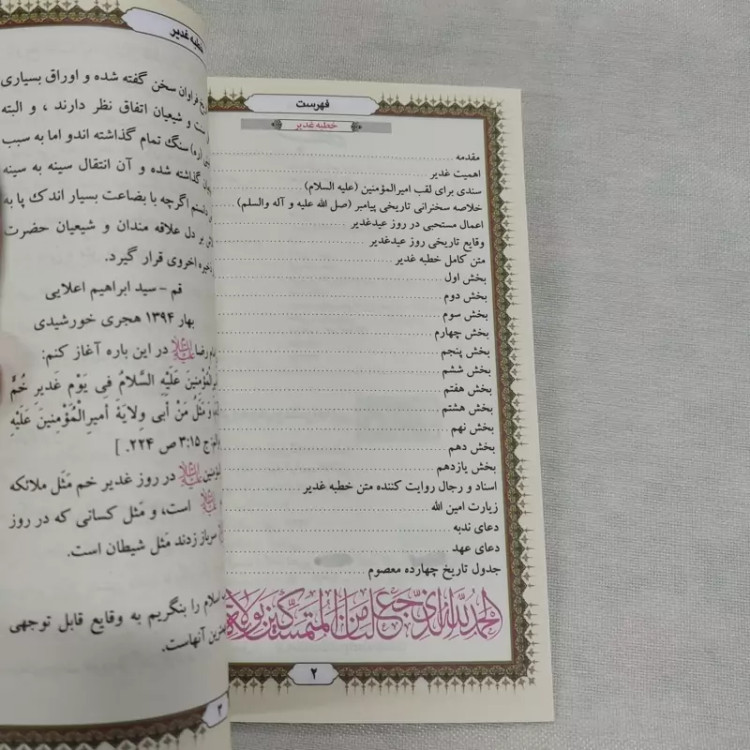 فهرست
خطبه غدیر
مقدمه
اهمیت غدیر
سندی برای لقب امیرالمؤمنین (علیه السلام)
خلاصه سخنرانی تاریخی پیامبر (صل الله علیه و آله والسلم)
اعمال مستحبی در روز عیدغدیر
وقایع تاریخی روز عیدغدیر
متن کامل خطبه غدیر
بخش اول
بخش دوم
بخش سوم
بخش چهارم
بخش پنجم
بخش ششم
بخش هفتم
بخش هشتم
بخش نهم
بخش دهم
بخش یازدهم
اسناد و رجال روایت کننده متن خطبه غدیر
زیارت امین الله
دعای ندبه
دعای عهد
جدول تاریخ چهارده معصوم
الحمدلله الذی جعلنا من المتمسکین بولایة
۲
خطبه غدیر
فراوان سخن گفته شده و اوراق بسیاری
و شیعیان اتفاق نظر دارند ، و البته
(ره) سنگ تمام گذاشته اندو اما به سبب
گذاشته شده و آن انتقال سینه به سینه
اگرچه با بضاعت بسیار اندک پا به
بر دل علاقه مندان و شیعیان حضرت
اخروی قرار گیرد.
قم – سید ابراهیم اعلایی
بهار ۱۳۹۴ هجری خورشیدی
رضا علیه‌السلام در این باره آغاز کنم:
عَلَیْهِ السَّلامُ فی یَوْمِ غَدیرِ خُمٍّ
وَ مَثَلُ مَنْ أَبی وِلایَةَ أَمیرِالْمُؤْمِنینَ عَلَیْهِ
۳:۱۵ ص ۲۲۴. ]
در روز غدیر خم مَثَل ملائکه
است، و مَثل کسانی که در روز
سرباز زدند مَثل شیطان است.
را بنگریم به وقایع قابل توجهی
آنهاست.
۳